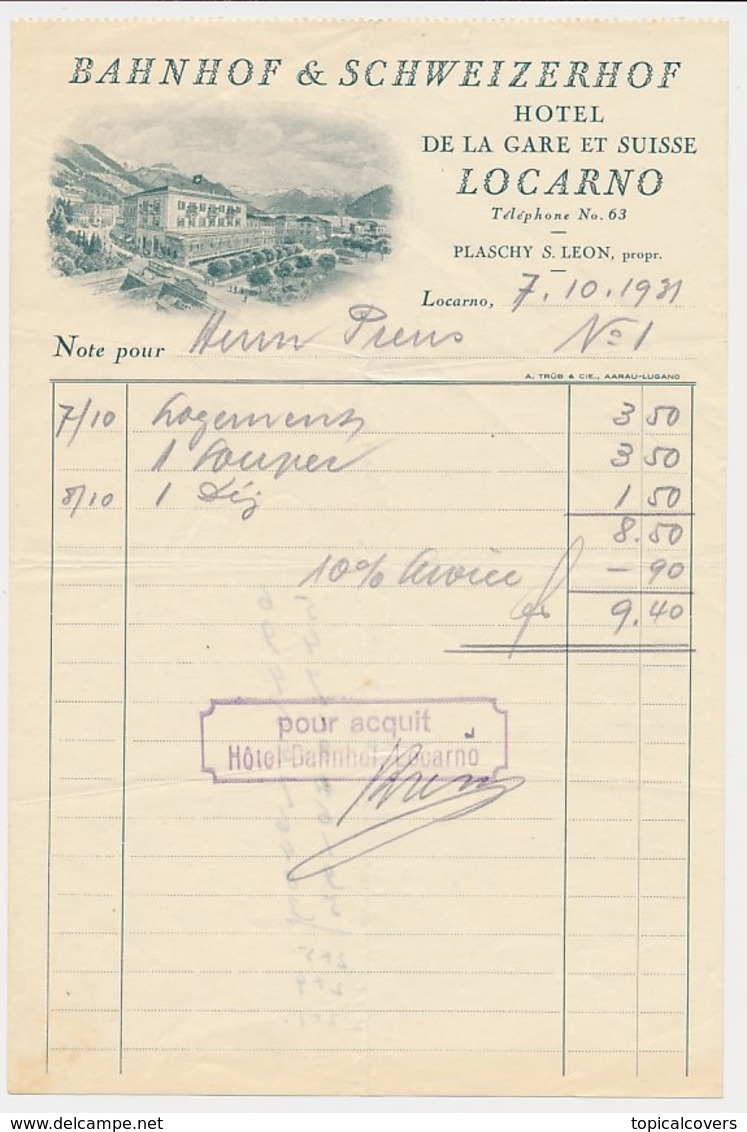 BAHNHOF & SCHWEIZERHOF
HOTEL
DE LA GARE ET SUISSE
LOCARNO
Téléphone No. 63
PLASCHY S. LEON, propr.
Locarno, 7.10.1931
Note pour Herrn Preus No 1
A. TRÜB & CIE., AARAU-LUGANO
7/10 Logement 3 50
1 Souper 3 50
8/10 1 Déj 1 50
8.50
10% service - 90
9.40
pour acquit
Hôtel Bahnhof, Locarno
delcampe.net
topicalcovers